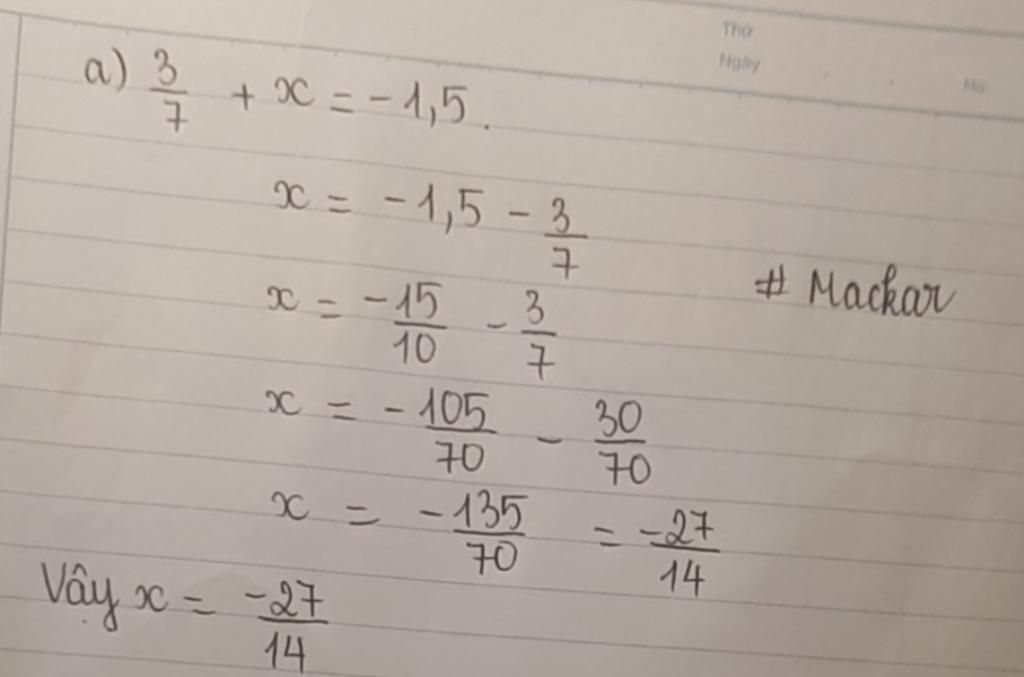 Thứ
Ngày
No
a) 3/7 + x = -1,5.
x = -1,5 - 3/7
x = -15/10 - 3/7
# Mackar
x = -105/70 - 30/70
x = -135/70 = -27/14
Vậy x = -27/14